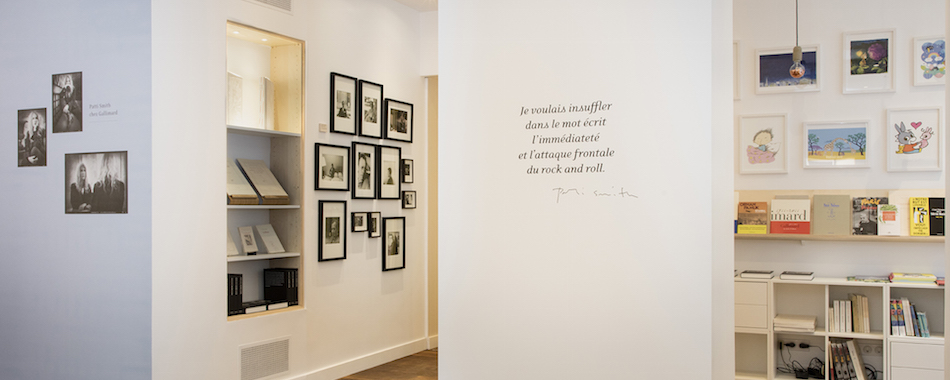 Patti Smith
chez Gallimard
Je voulais insuffler
dans le mot écrit
l'immédiateté
et l'attaque frontale
du rock and roll.
Patti Smith